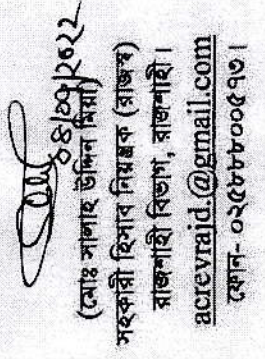 ০৪/০৭/২০২২
(মোঃ সালাহ উদ্দিন মিয়া)
সহকারী হিসাব নিয়ন্ত্রক (রাজস্ব)
রাজশাহী বিভাগ, রাজশাহী।
acrevrajd.@gmail.com
ফোন- ০২৫৮৮৮০০৫৭৩।